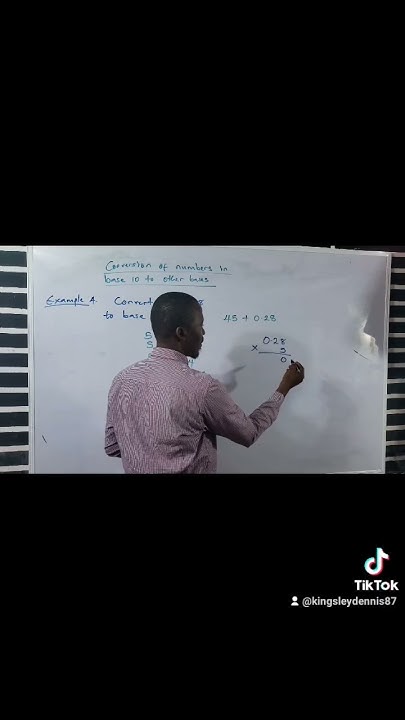 Conversion of numbers in
base 10 to other bases
Example 4. Convert 8
to base 45 + 0.28
5
5 0.28
x 5
0
TikTok
@kingsleydennis87